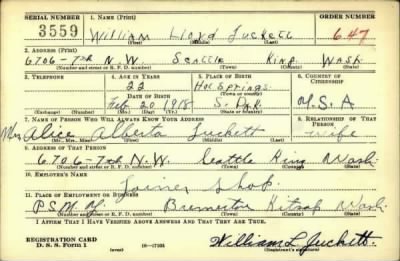 SERIAL NUMBER 1. NAME (Print) ORDER NUMBER
3559 William Lloyd Tuckett 647
(First) (Middle) (Last)
2. ADDRESS (Print)
6706-7th N.W. Seattle King Wash
(Number and street or R. F. D. number) (Town) (County) (State)
3. TELEPHONE 4. AGE IN YEARS 5. PLACE OF BIRTH 6. COUNTRY OF CITIZENSHIP
22 Hot Springs
DATE OF BIRTH (Town or county)
Feb. 20 1918 S. Dak. U.S.A
(Exchange) (Number) (Mo.) (Day) (Yr.) (State or country)
7. NAME OF PERSON WHO WILL ALWAYS KNOW YOUR ADDRESS 8. RELATIONSHIP OF THAT PERSON
Mrs Alice Alberta Tuckett Wife
(Mr., Mrs., Miss) (First) (Middle) (Last)
9. ADDRESS OF THAT PERSON
6706-7th N.W. Seattle King Wash.
(Number and street or R. F. D. number) (Town) (County) (State)
10. EMPLOYER'S NAME
Joiner Shop.
11. PLACE OF EMPLOYMENT OR BUSINESS
P.S.N.Y. Bremerton Kitsap Wash.
(Number and street or R. F. D. number) (Town) (County) (State)
I AFFIRM THAT I HAVE VERIFIED ABOVE ANSWERS AND THAT THEY ARE TRUE.
REGISTRATION CARD
D. S. S. Form 1 (over) 16—17105 William L Tuckett
(Registrant's signature)